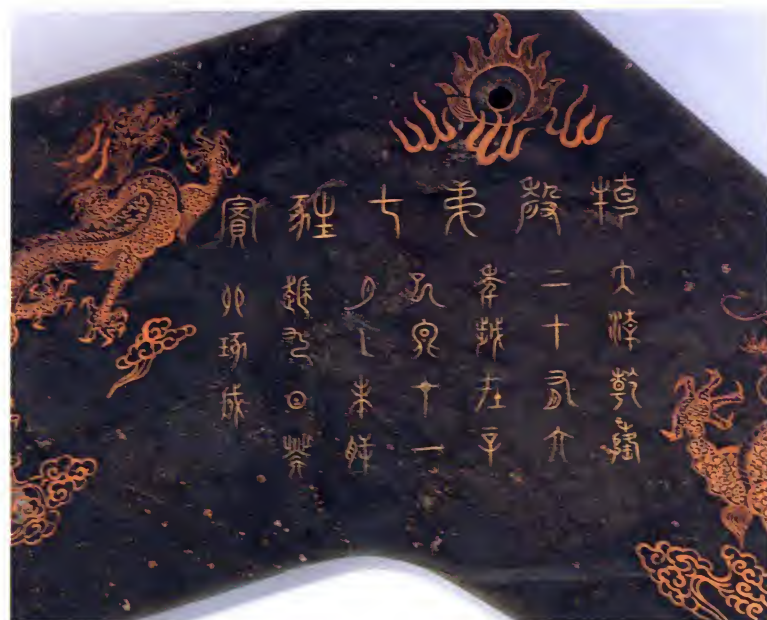 特磬弟七蕤賓
大清乾隆
二十有六
年歲在辛
巳冬十一
月乙未朔
越九日癸
卯琢成